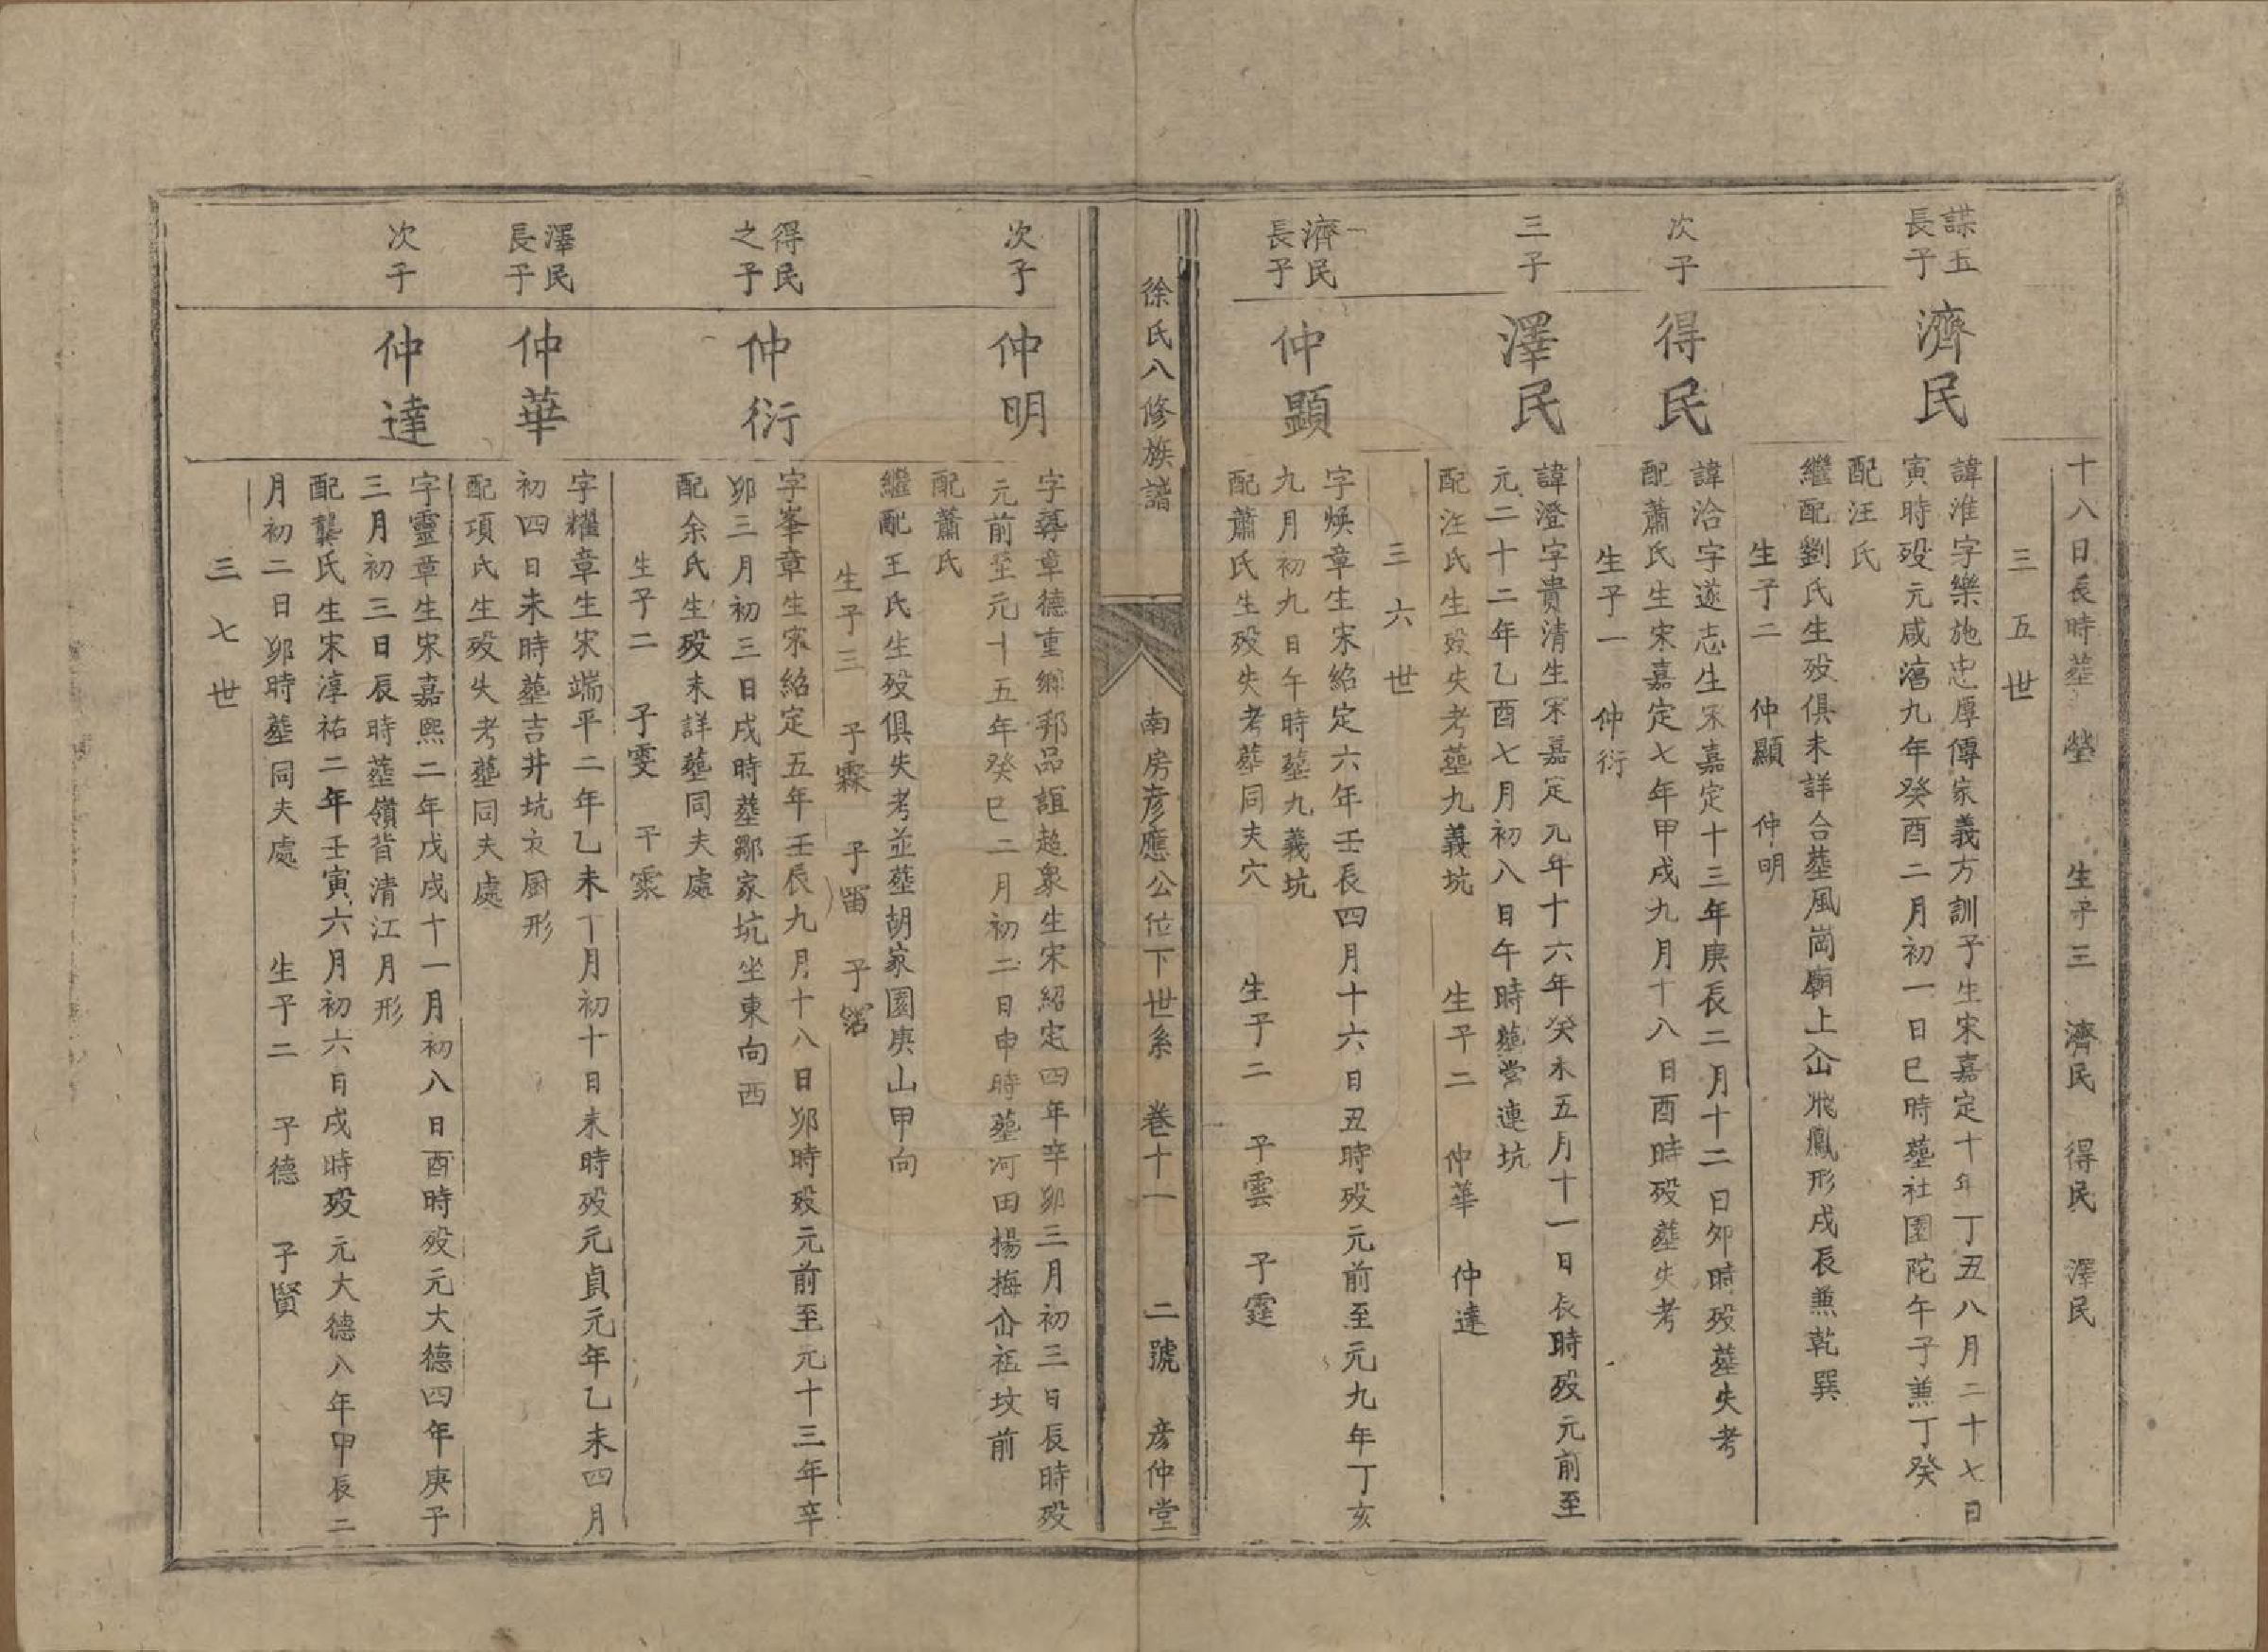 十八日辰時塟 塋 生子三 濟民 得民 澤民
三五世
謀五
長子
濟民
諱淮字樂施忠厚傳家義方訓子生宋嘉定十年丁丑八月二十七日
寅時歿元咸淳九年癸酉二月初一日巳時塟社園陀午子兼丁癸
配汪氏
繼配劉氏生歿俱未詳合塟風崗廟上仚飛鳳形戌辰兼乾巽
生子二 仲顯 仲明
次子
得民
諱洽字遂志生宋嘉定十三年庚辰二月十二日卯時歿塟失考
配蕭氏生宋嘉定七年甲戌九月十八日酉時歿塟失考
生子一 仲衍
三子
澤民
諱澄字貴清生宋嘉定元年十六年癸未五月十一日辰時歿元前至
元二十二年乙酉七月初八日午時塟堂連坑
配汪氏生歿失考塟九義坑 生子二 仲華 仲達
三六世
濟民
長子
仲顯
字煥章生宋紹定六年壬辰四月十六日丑時歿元前至元九年丁亥
九月初九日午時塟九義坑
配蕭氏生歿失考塟同夫穴 生子二 子雲 子霆
徐氏八修族譜 南房彦應公位下世系 卷十一 二號 彦仲堂
次子
仲明
字尋章德重鄉邦品誼超象生宋紹定四年辛卯三月初三日辰時歿
元前至元十五年癸巳二月初二日申時塟河田楊梅仚祖坟前
配蕭氏
繼配王氏生歿俱失考並塟胡家園庚山甲向
生子三 子霖 子雷 子
得民
之子
仲衍
字峯章生宋紹定五年壬辰九月十八日卯時歿元前至元十三年辛
卯三月初三日戌時塟鄒家坑坐東向西
配余氏生歿未詳塟同夫處
生子二 子雯 子霂
澤民
長子
仲華
字耀章生宋端平二年乙未十月初十日未時歿元貞元年乙未四月
初四日未時塟吉井坑衣厨形
配項氏生歿失考塟同夫處
次子
仲達
字靈章生宋嘉熙二年戊戌十一月初八日酉時歿元大德四年庚子
三月初三日辰時塟嶺背清江月形
配龔氏生宋淳祐二年壬寅六月初六日戌時歿元大德八年甲辰二
月初二日卯時塟同夫處 生子二 子德 子賢
三七世